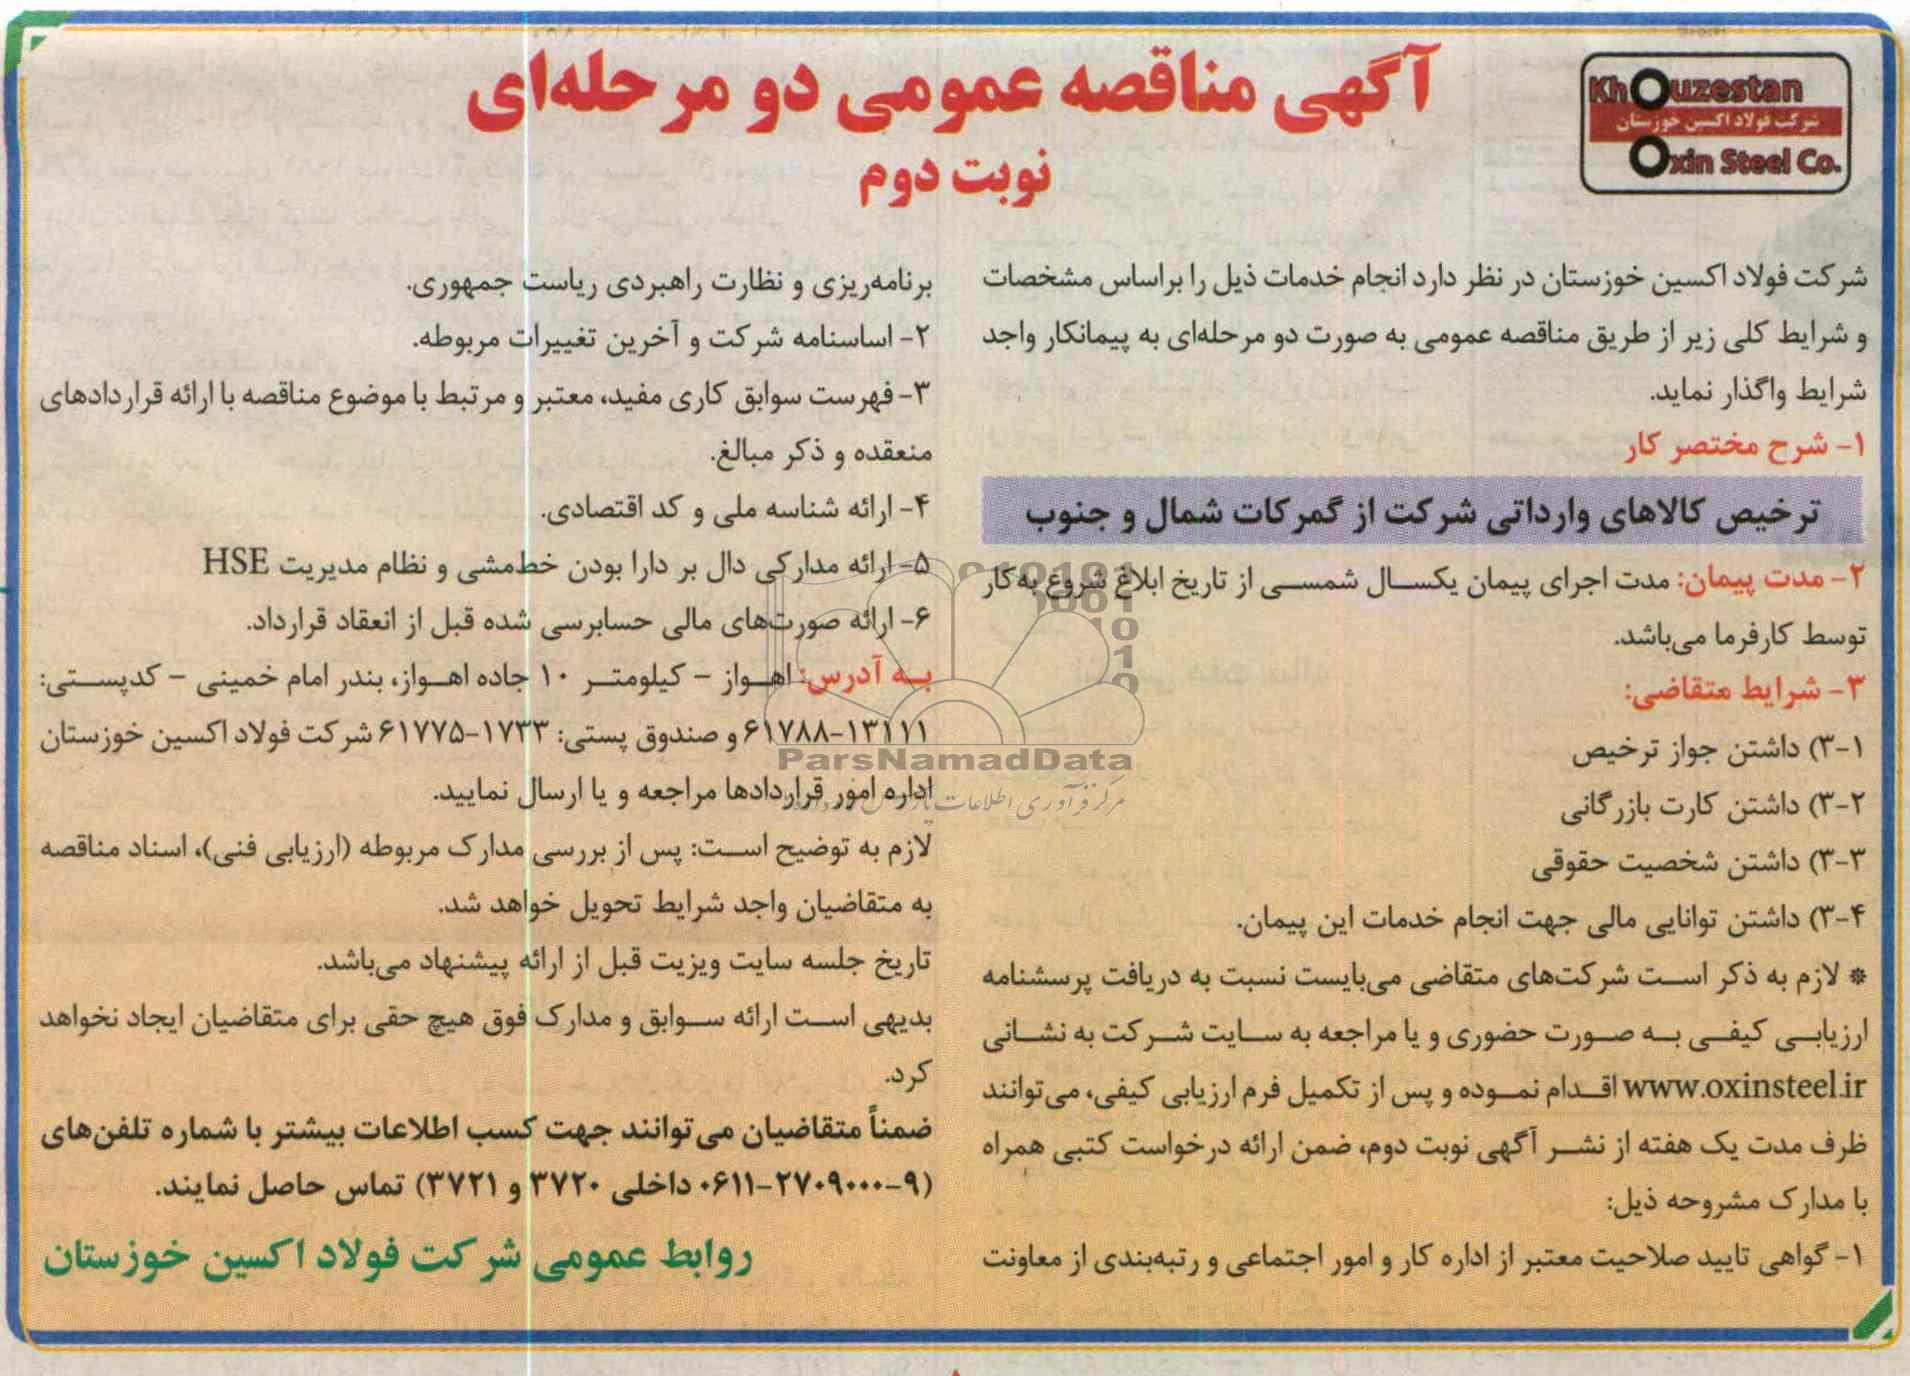 آگهی مناقصه عمومی دو مرحله‌ای
نوبت دوم
Khouzestan
شرکت فولاد اکسین خوزستان
Oxin Steel Co.
شرکت فولاد اکسین خوزستان در نظر دارد انجام خدمات ذیل را براساس مشخصات
و شرایط کلی زیر از طریق مناقصه عمومی به صورت دو مرحله‌ای به پیمانکار واجد
شرایط واگذار نماید.
۱- شرح مختصر کار
ترخیص کالاهای وارداتی شرکت از گمرکات شمال و جنوب
۲- مدت پیمان: مدت اجرای پیمان یکسال شمسی از تاریخ ابلاغ شروع به‌کار
توسط کارفرما می‌باشد.
۳- شرایط متقاضی:
۳-۱) داشتن جواز ترخیص
۳-۲) داشتن کارت بازرگانی
۳-۳) داشتن شخصیت حقوقی
۳-۴) داشتن توانایی مالی جهت انجام خدمات این پیمان.
* لازم به ذکر است شرکت‌های متقاضی می‌بایست نسبت به دریافت پرسشنامه
ارزیابی کیفی به صورت حضوری و یا مراجعه به سایت شرکت به نشانی
www.oxinsteel.ir اقدام نموده و پس از تکمیل فرم ارزیابی کیفی، می‌توانند
ظرف مدت یک هفته از نشر آگهی نوبت دوم، ضمن ارائه درخواست کتبی همراه
با مدارک مشروحه ذیل:
۱- گواهی تایید صلاحیت معتبر از اداره کار و امور اجتماعی و رتبه‌بندی از معاونت
برنامه‌ریزی و نظارت راهبردی ریاست جمهوری.
۲- اساسنامه شرکت و آخرین تغییرات مربوطه.
۳- فهرست سوابق کاری مفید، معتبر و مرتبط با موضوع مناقصه با ارائه قراردادهای
منعقده و ذکر مبالغ.
۴- ارائه شناسه ملی و کد اقتصادی.
۵- ارائه مدارکی دال بر دارا بودن خط‌مشی و نظام مدیریت HSE
۶- ارائه صورت‌های مالی حسابرسی شده قبل از انعقاد قرارداد.
به آدرس: اهواز - کیلومتر ۱۰ جاده اهواز، بندر امام خمینی - کدپستی:
۶۱۷۸۸-۱۳۱۱۱ و صندوق پستی: ۱۷۳۳-۶۱۷۷۵ شرکت فولاد اکسین خوزستان
اداره امور قراردادها مراجعه و یا ارسال نمایید.
لازم به توضیح است: پس از بررسی مدارک مربوطه (ارزیابی فنی)، اسناد مناقصه
به متقاضیان واجد شرایط تحویل خواهد شد.
تاریخ جلسه سایت ویزیت قبل از ارائه پیشنهاد می‌باشد.
بدیهی است ارائه سوابق و مدارک فوق هیچ حقی برای متقاضیان ایجاد نخواهد
کرد.
ضمناً متقاضیان می‌توانند جهت کسب اطلاعات بیشتر با شماره تلفن‌های
(۹-۲۷۰۹۰۰۰-۰۶۱۱ داخلی ۳۷۲۰ و ۳۷۲۱) تماس حاصل نمایند.
روابط عمومی شرکت فولاد اکسین خوزستان
ParsNamadData